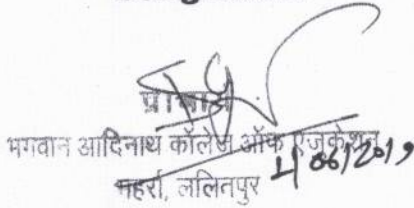 प्राचार्य
भगवान आदिनाथ कॉलेज ऑफ एजूकेशन
महर्रा, ललितपुर 4/06/2019